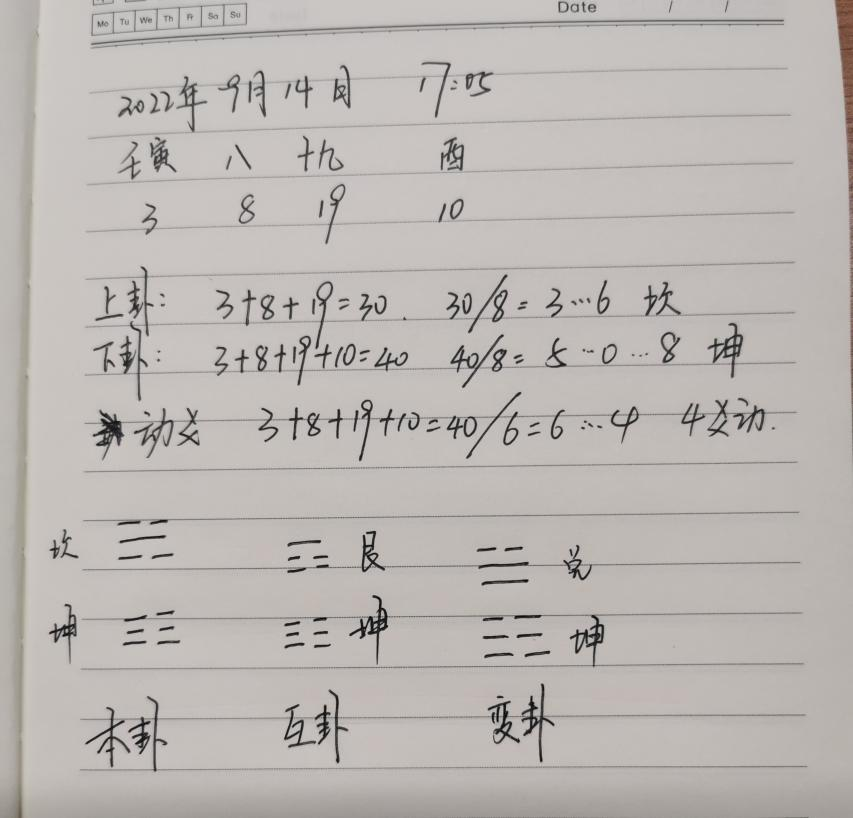 Date / /
Mo Tu We Th Fr Sa Su
2022年 9月 14日 17:05
壬寅 八 十九 酉
3 8 19 10
上卦: 3+8+19=30. 30/8=3…6 坎
下卦: 3+8+19+10=40 40/8=5…0…8 坤
动爻 3+8+19+10=40/6=6…4 4爻动.
坎 艮 兑
坤 坤 坤
本卦 互卦 变卦